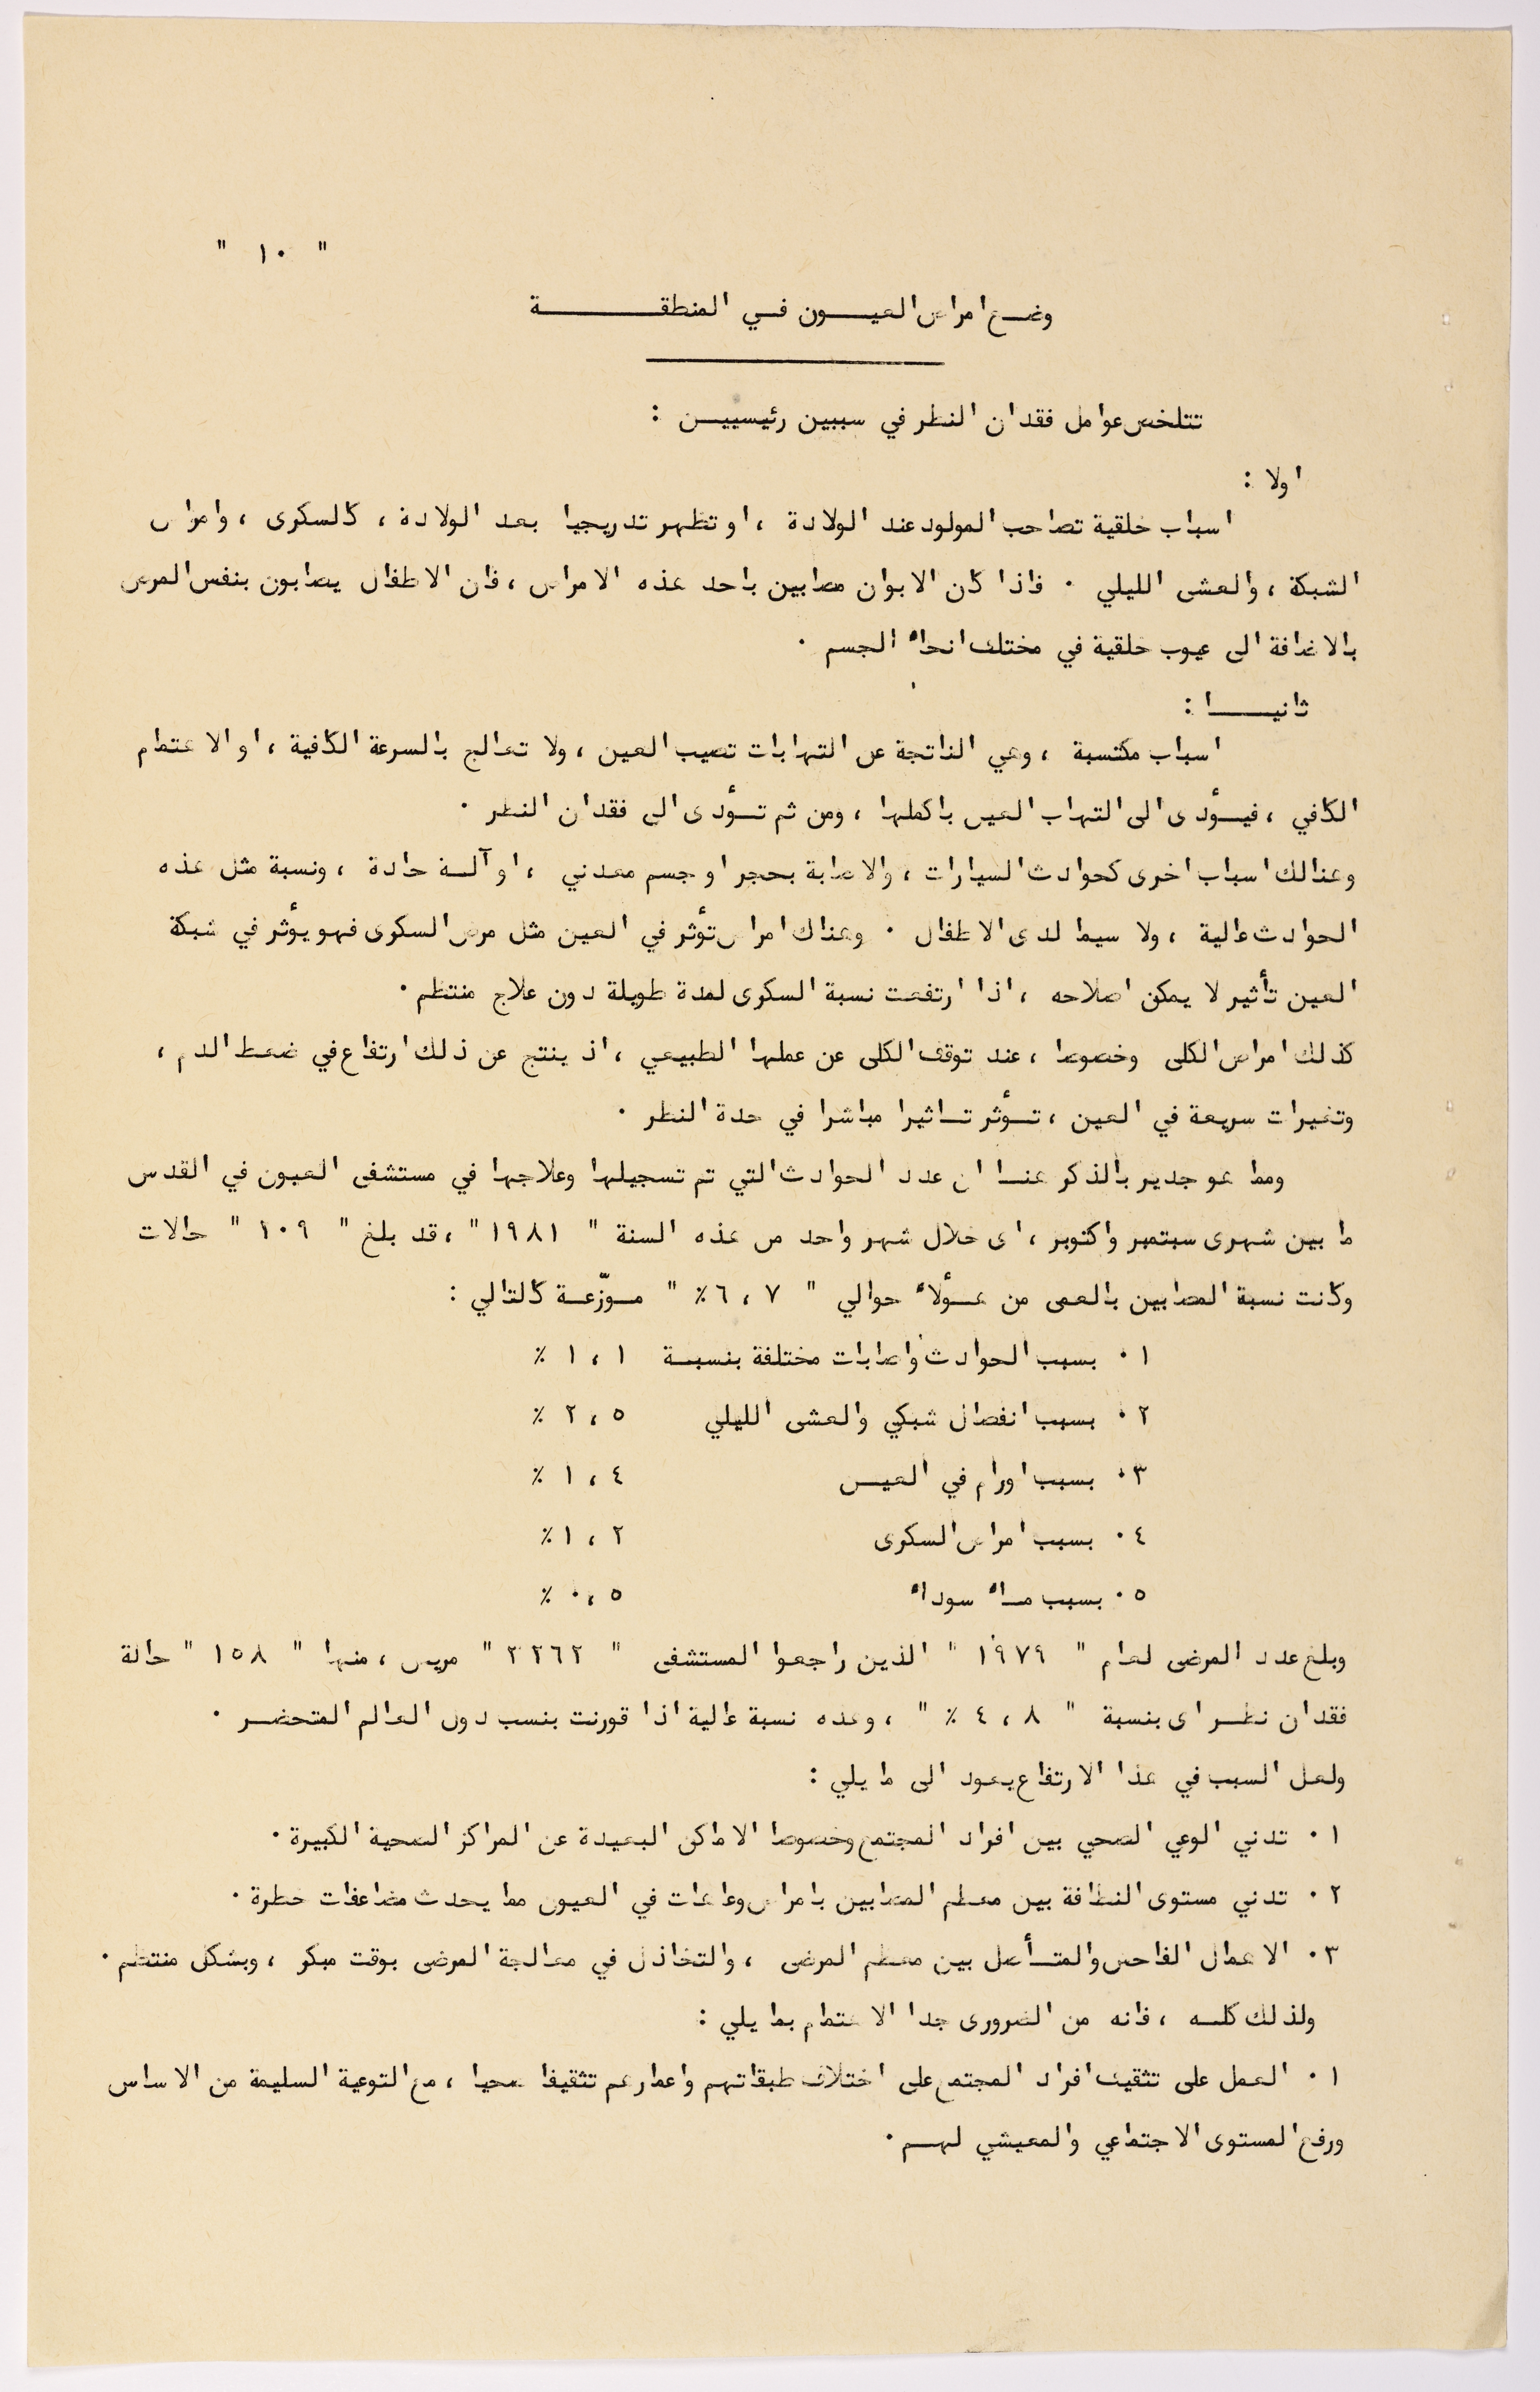 " ١٠ "
وضـع امراض العيـــون فــي المنطقـــــــة
تتلخص عوامل فقدان النظر في سببين رئيسييــن :
اولا :
اسباب خلقية تصاحب المولود عند الولادة ، او تظهر تدريجيا بعد الولادة ، كالسكرى ، وامراض
الشبكة ، والعشى الليلي ٠ فاذا كان الابوان مصابين باحد هذه الامراض ، فان الاطفال يصابون بنفس المرض
بالاضافة الى عيوب خلقية في مختلف انحاء الجسم ٠
ثانيـــا :
اسباب مكتسبة ، وهي الناتجة عن التهابات تصيب العين ، ولا تعالج بالسرعة الكافية ، او الاهتمام
الكافي ، فيــؤدى الى التهاب العين باكملها ، ومن ثم تــؤدى الى فقدان النظر ٠
وهنالك اسباب اخرى كحوادث السيارات ، والاصابة بحجر او جسم معدني ، او آلــة حادة ، ونسبة مثل هذه
الحوادث عالية ، ولا سيما لدى الاطفال ٠ وهناك امراض تؤثر في العين مثل مرض السكرى فهو يؤثر في شبكة
العين تأثير لا يمكن اصلاحه ، اذا ارتفعت نسبة السكرى لمدة طويلة دون علاج منتظم ٠
كذلك امراض الكلى وخصوصا ، عند توقف الكلى عن عملها الطبيعي ، اذ ينتج عن ذلك ارتفاع في ضغط الدم ،
وتغيرات سريعة في العين ، تــؤثر تــاثيرا مباشرا في حدة النظر ٠
ومما هو جدير بالذكر هنــا ان عدد الحوادث التي تم تسجيلها وعلاجها في مستشفى العيون في القدس
ما بين شهرى سبتمبر واكتوبر ، اى خلال شهر واحد من هذه السنة " ١٩٨١ " ، قد بلغ " ١٠٩ " حالات
وكانت نسبة المصابين بالعمى من هــؤلاء حوالي " ٦،٧ ٪ " مــوزّعــة كالتالي :
٠١ بسبب الحوادث واصابات مختلفة بنسبــة ١،١ ٪
٠٢ بسبب انفصال شبكي والعشى الليلي ٢،٥ ٪
٠٣ بسبب اورام في العيــن ١،٤ ٪
٠٤ بسبب امراض السكرى ١،٢ ٪
٠٥ بسبب مــاء سوداء ٠،٥ ٪
وبلغ عدد المرضى لعام " ١٩٧٩ " الذين راجعوا المستشفى " ٣٢٦٢ " مريض ، منها " ١٥٨ " حالة
فقدان نظــر اى بنسبة " ٤،٨ ٪ " ، وهذه نسبة عالية اذا قورنت بنسب دول العالم المتحضــر ٠
ولعل السبب في هذا الارتفاع يعود الى ما يلي :
٠١ تدني الوعي الصحي بين افراد المجتمع وخصوصا الاماكن البعيدة عن المراكز الصحية الكبيرة ٠
٠٢ تدني مستوى النظافة بين معظم المصابين بامراض وعاهات في العيون مما يحدث مضاعفات خطرة ٠
٠٣ الاهمال الفاحش والمتــأصل بين معظم المرضى ، والتخاذل في معالجة المرضى بوقت مبكر ، وبشكل منتظم ٠
ولذلك كلــه ، فانه من الضرورى جدا الاهتمام بما يلي :
٠١ العمل على تثقيف افراد المجتمع على اختلاف طبقاتهم واعمارهم تثقيفا صحيا ، مع التوعية السليمة من الاساس
ورفع المستوى الاجتماعي والمعيشي لهــم ٠